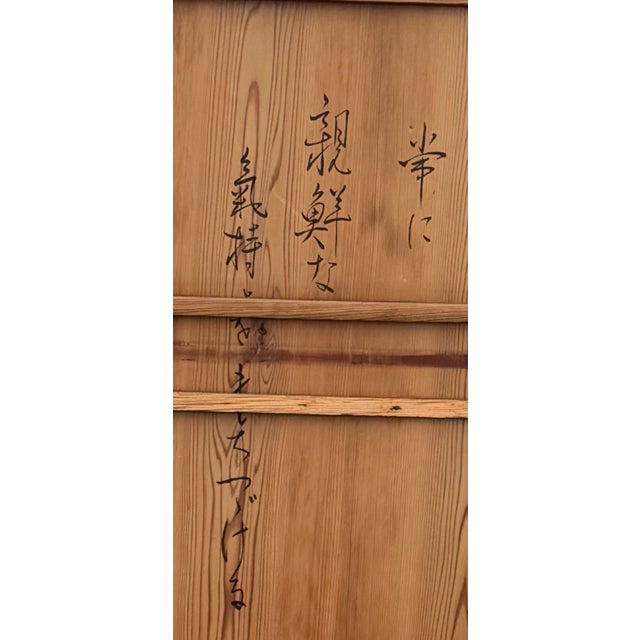 常に
親鮮な
氣持をもちつゞける